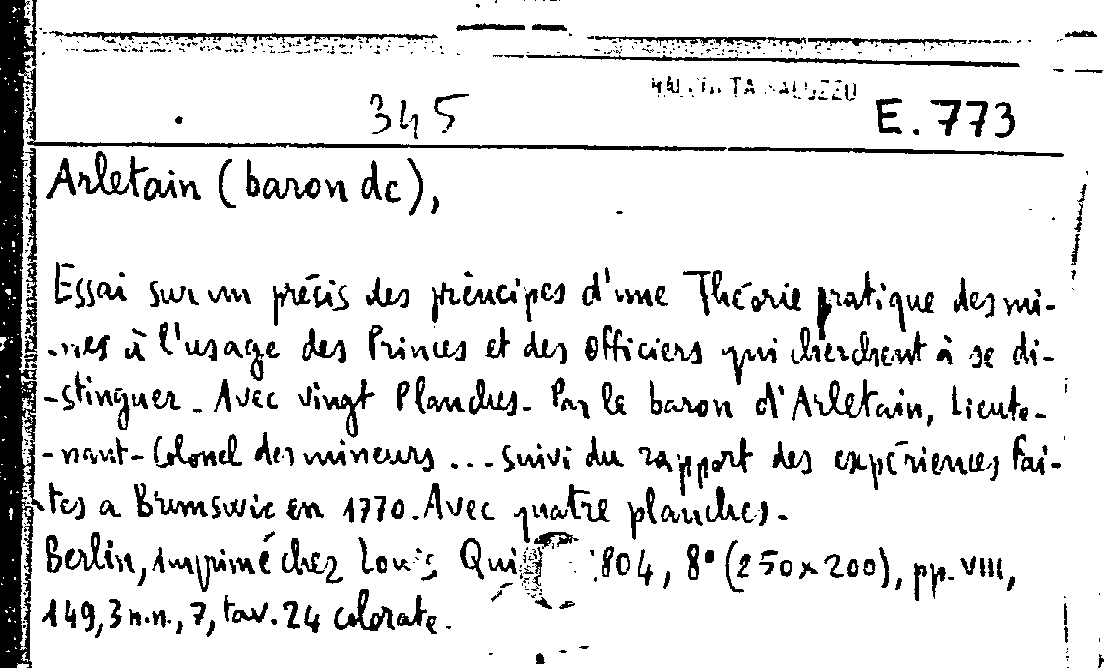 345
RACCOLTA SALUZZO
E.773
Arletain (baron de),
Essai sur un précis des principes d'une Théorie pratique des mi-
-nes à l'usage des Princes et des Officiers qui cherchent à se di-
-stinguer. Avec vingt Planches. Par le baron d'Arletain, Lieute-
-nant-Colonel des mineurs ... suivi du rapport des expériences fai-
-tes a Brunswic en 1770. Avec quatre planches.
Berlin, imprimé chez Louis Qui 804, 8° (250×200), pp. VIII,
149, 3 n.n., 7, tav. 24 colorate.